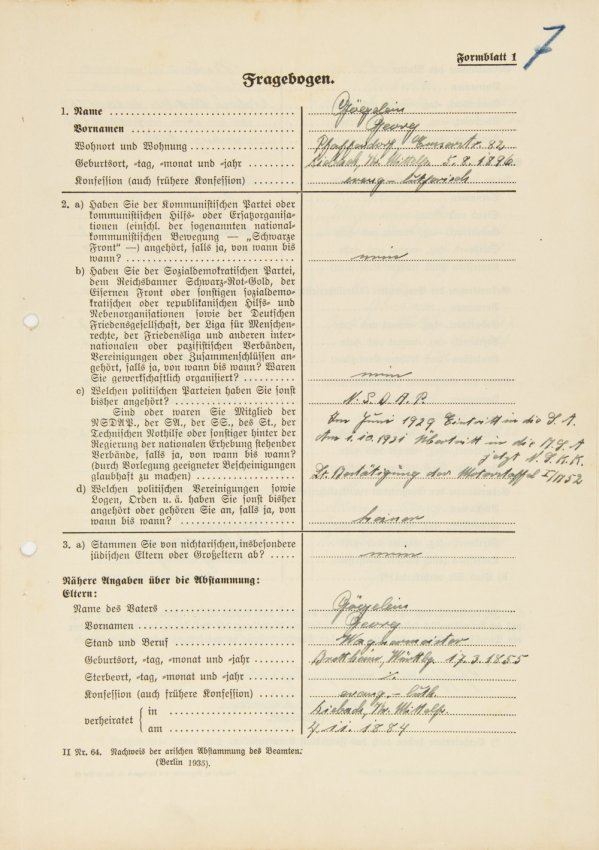 7
Formblatt 1
Fragebogen.
1. Name
Vornamen Georg
Wohnort und Wohnung Pfaffendorf, Emserstr. 82
Geburtsort, -tag, -monat und -jahr 5. 8. 1896
Konfession (auch frühere Konfession) evang.-lutherisch
2. a) Haben Sie der Kommunistischen Partei oder
kommunistischen Hilfs- oder Ersatzorganisa-
tionen (einschl. der sogenannten national-
kommunistischen Bewegung — „Schwarze
Front“ —) angehört, falls ja, von wann bis
wann? nein
b) Haben Sie der Sozialdemokratischen Partei,
dem Reichsbanner Schwarz-Rot-Gold, der
Eisernen Front oder sonstigen sozialdemo-
kratischen oder republikanischen Hilfs- und
Nebenorganisationen sowie der Deutschen
Friedensgesellschaft, der Liga für Menschen-
rechte, der Friedensliga und anderen inter-
nationalen oder pazifistischen Verbänden,
Vereinigungen oder Zusammenschlüssen an-
gehört, falls ja, von wann bis wann? Waren
Sie gewerkschaftlich organisiert? nein
c) Welchen politischen Parteien haben Sie sonst
bisher angehört? N. S. D. A. P.
Sind oder waren Sie Mitglied der
NSDAP., der SA., der SS., des St., der
Technischen Nothilfe oder sonstiger hinter der
Regierung der nationalen Erhebung stehender
Verbände, falls ja, von wann bis wann?
(durch Vorlegung geeigneter Bescheinigungen
glaubhaft zu machen)
Im Juni 1929 Eintritt in die S. A.
Am 1. 10. 1931 Übertritt in die
jetzt N. S. K. K.
Lt. Bestätigung der Motorstaffel
d) Welchen politischen Vereinigungen sowie
Logen, Orden u. ä. haben Sie sonst bisher
angehört oder gehören Sie an, falls ja, von
wann bis wann? keiner
3. a) Stammen Sie von nichtarischen, insbesondere
jüdischen Eltern oder Großeltern ab? nein
Nähere Angaben über die Abstammung:
Eltern:
Name des Vaters
Vornamen Georg
Stand und Beruf Wagnermeister
Geburtsort, -tag, -monat und -jahr Württbg. 17. 3. 1855
Sterbeort, -tag, -monat und -jahr
Konfession (auch frühere Konfession) evang.-luth.
verheiratet { in
am 4. 11. 1884
II Nr. 64. Nachweis der arischen Abstammung des Beamten.
(Berlin 1935).